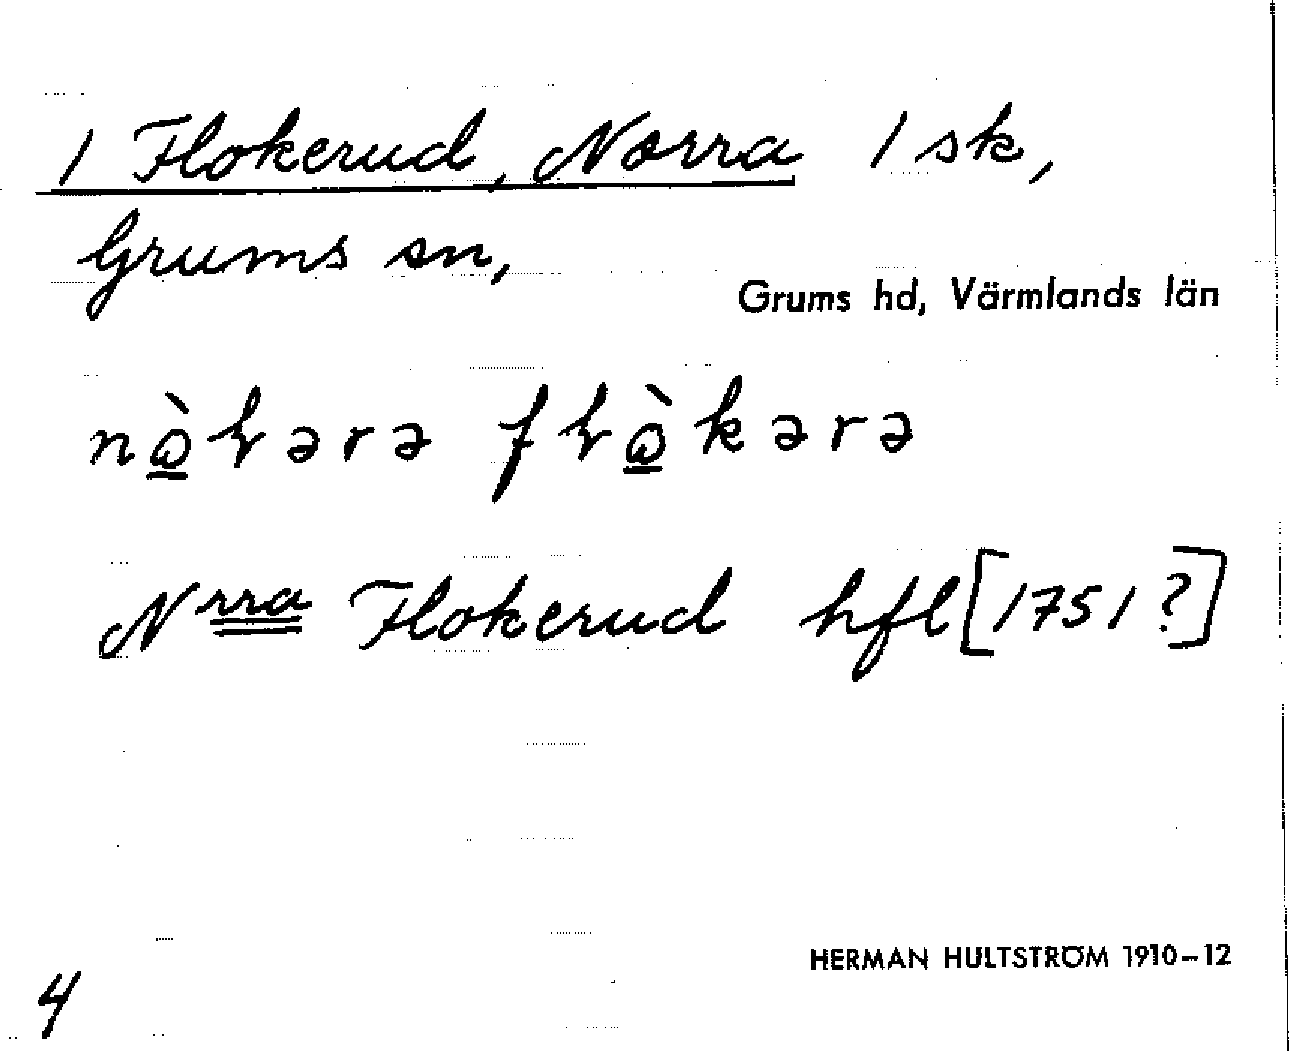 1 Flokerud, Norra 1 sk,
Grums sn,
Grums hd, Värmlands län
Nrra Flokerud hfl [1751?]
HERMAN HULTSTRÖM 1910–12
4